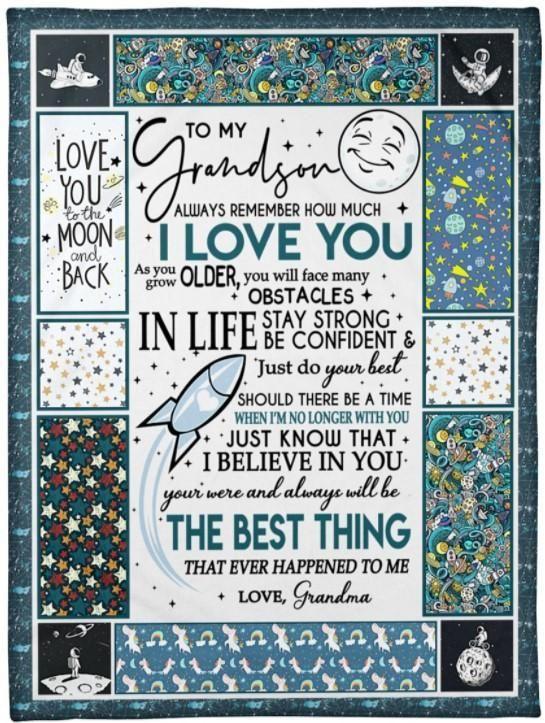 LOVE
YOU
to the
MOON
and
BACK
TO MY
Grandson
ALWAYS REMEMBER HOW MUCH
I LOVE YOU
As you grow OLDER, you will face many
OBSTACLES
IN LIFE STAY STRONG
BE CONFIDENT &
Just do your best
SHOULD THERE BE A TIME
WHEN I'M NO LONGER WITH YOU
JUST KNOW THAT
I BELIEVE IN YOU
your were and always will be
THE BEST THING
THAT EVER HAPPENED TO ME
LOVE, Grandma